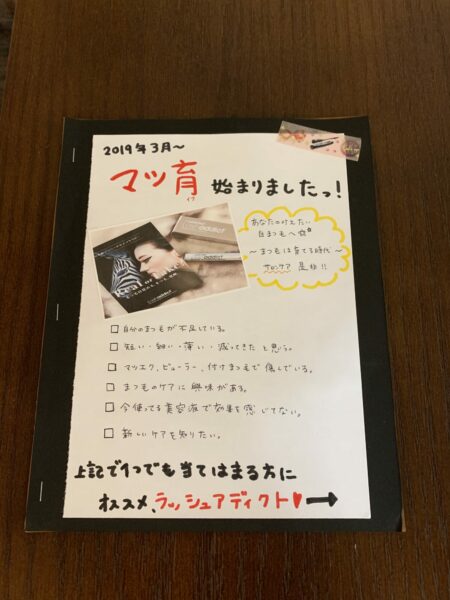 2019年3月～
マツ育
イク
始まりましたっ!
あなたの叶えたい
自まつ毛へ☆
～まつ毛は育てる時代～
サロンケア 是非!!
addict
Real or Fake
□ 自分のまつ毛が不足している。
□ 短い・細い・薄い・減ってきたと思う。
□ マツエク、ビューラー、付けまつ毛で傷んでいる。
□ まつ毛のケアに興味がある。
□ 今使ってる美容液で効果を感じてない。
□ 新しいケアを知りたい。
上記で1つでも当てはまる方に
オススメ、ラッシュアディクト♥→